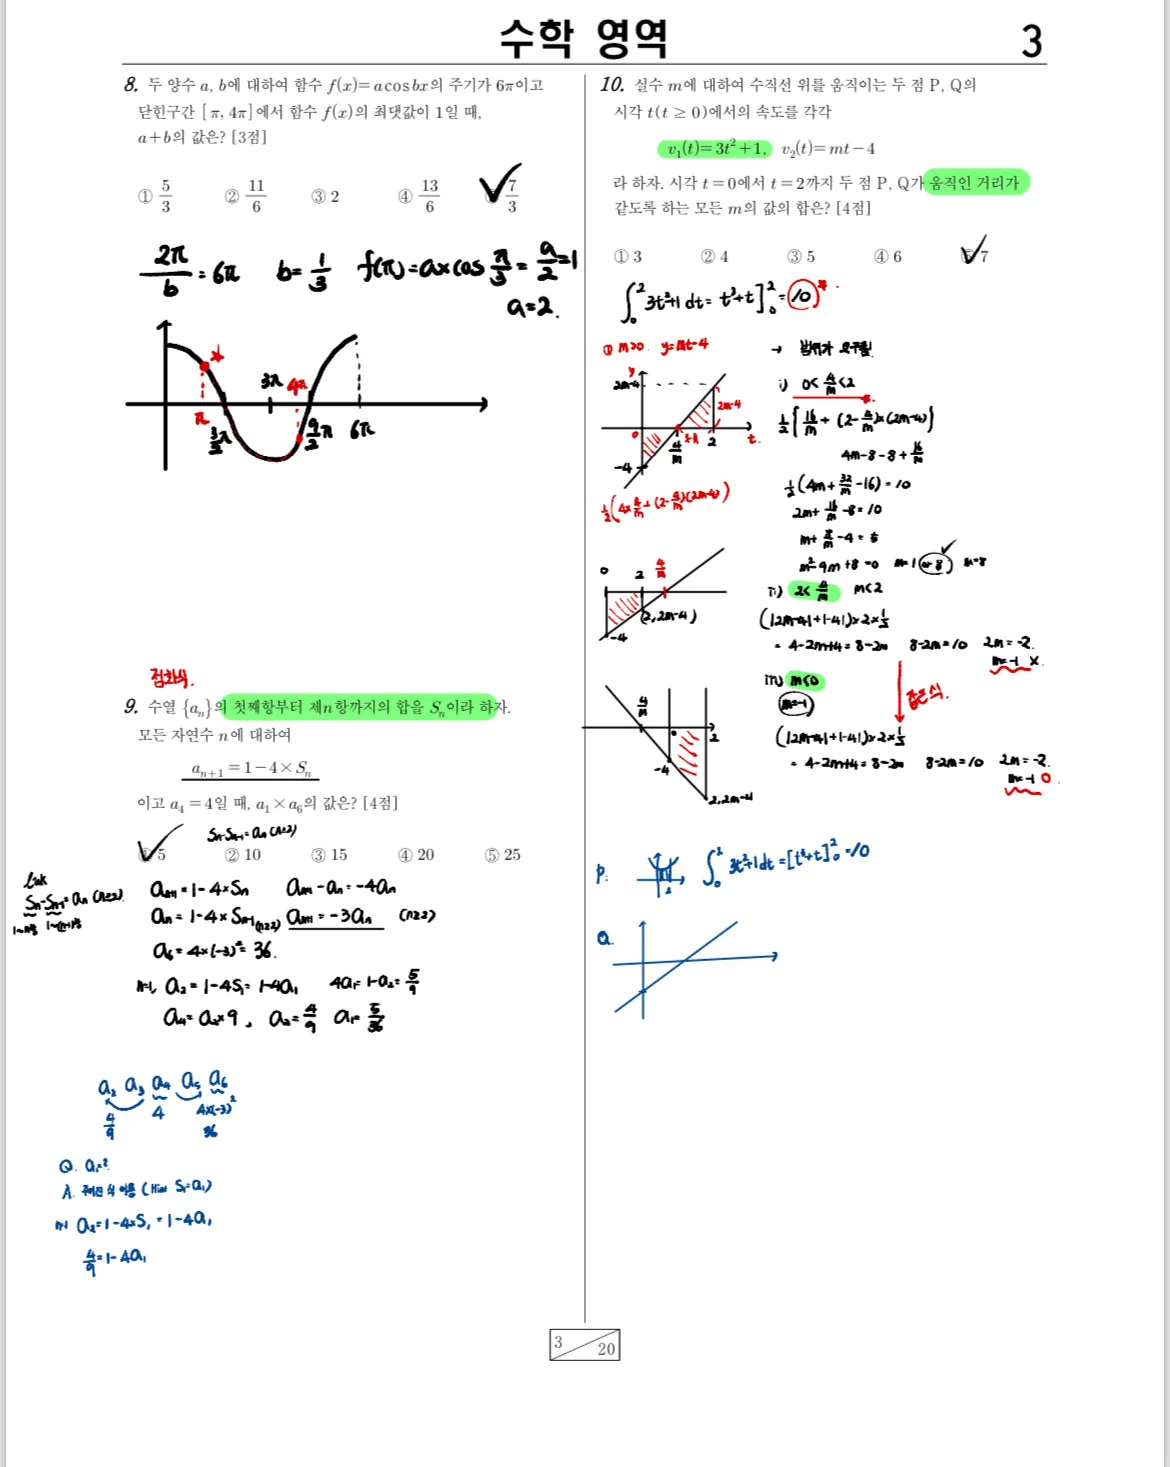 수학 영역
3
8. 두 양수 a, b에 대하여 함수 f(x)=a cos bx의 주기가 6π이고
닫힌구간 [π, 4π]에서 함수 f(x)의 최댓값이 1일 때,
a+b의 값은? [3점]
① 5/3 ② 11/6 ③ 2 ④ 13/6 7/3
2π/b = 6π b= 1/3 f(π)=a×cos π/3 = a/2 =1
a=2.
π 3/2π 3π 4π 9/2π 6π
점화식.
9. 수열 {aₙ}의 첫째항부터 제n항까지의 합을 Sₙ이라 하자.
모든 자연수 n에 대하여
aₙ₊₁ = 1−4×Sₙ
이고 a₄=4일 때, a₁×a₆의 값은? [4점]
Sₙ-Sₙ₋₁=aₙ (n≥2)
① 5 ② 10 ③ 15 ④ 20 ⑤ 25
link
Sₙ-Sₙ₋₁=aₙ (n≥2)
aₙ₊₁=1-4×Sₙ aₙ₊₁-aₙ=-4aₙ
aₙ=1-4×Sₙ₋₁ (n≥2) aₙ₊₁=-3aₙ (n≥2)
a₆=4×(-3)²=36.
n=1, a₂=1-4S₁=1-4a₁ 4a₁=1-a₂=5/9
a₄=a₂×9, a₂=4/9 a₁=5/36
a₂ a₃ a₄ a₅ a₆
4/9 4 4×(-3)²
36
Q. a₁=?
A. 주어진 식 이용 (Hint S₁=a₁)
n=1 a₂=1-4×S₁=1-4a₁
4/9=1-4a₁
10. 실수 m에 대하여 수직선 위를 움직이는 두 점 P, Q의
시각 t(t≥0)에서의 속도를 각각
v₁(t)=3t²+1, v₂(t)=mt−4
라 하자. 시각 t=0에서 t=2까지 두 점 P, Q가 움직인 거리가
같도록 하는 모든 m의 값의 합은? [4점]
① 3 ② 4 ③ 5 ④ 6 7
∫₀² 3t²+1 dt= t³+t]₀²=10
① m>0. y=mt-4
i) 0<4/m<2
y 2m-4 2m-4 0 4/m 2 t. -4
1/2{16/m+(2-4/m)×(2m-4)}
4m-8-8+16/m
1/2(4×4/m+(2-4/m)(2m-4))
1/2(4m+32/m-16)=10
2m+16/m-8=10
m+8/m-4=5
m²-9m+8=0 m=1 or 8 m=8
0 2 4/m (2,2m-4) -4
ii) 2<4/m m<2
(|2m-4|+|-4|)×2×1/2
= 4-2m+4=8-2m 8-2m=10 2m=-2.
m=-1 ×.
iii) m<0
m=-1
같은 식.
(|2m-4|+|-4|)×2×1/2
= 4-2m+4=8-2m 8-2m=10 2m=-2.
m=-1 O.
4/m 0 2 -4 2,2m-4
P. 2 ∫₀² 3t²+1 dt=[t³+t]₀²=10
Q.
3
20